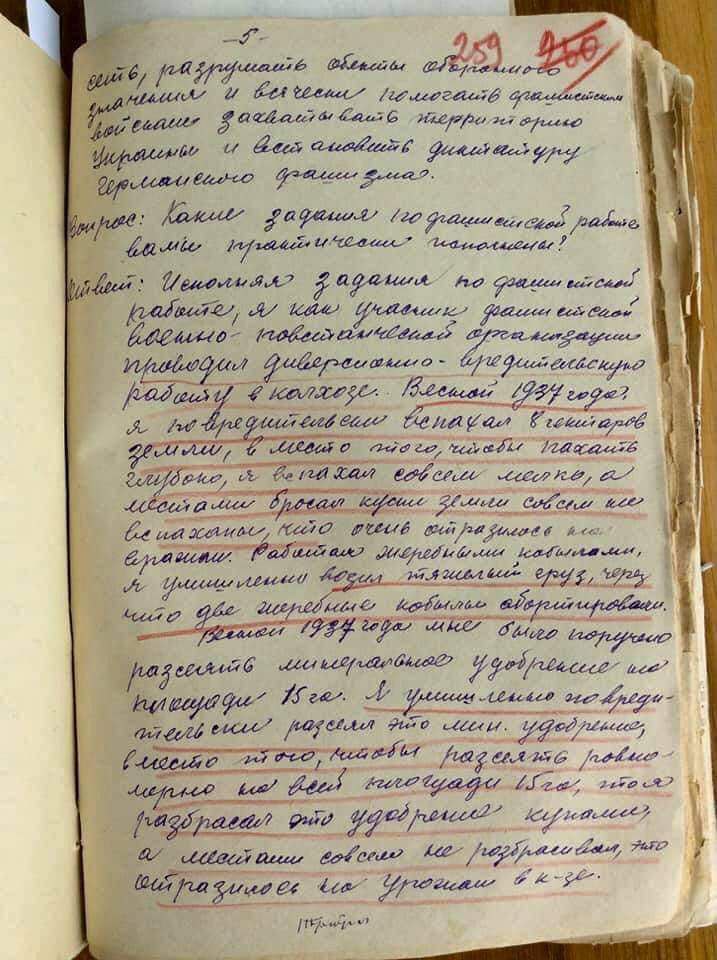 -5-
259 260
сеть, разрушать обекты оборонного
значения и всячески помогать фашистским
войскам захватывать территорию
Украины и встановить диктатуру
Германского фашизма.
Вопрос: Какие задания по фашистской работе
вами практически исполнены?
Ответ: Исполняя задания по фашистской
работе, я как участник фашистской
военно-повстанческой организации
проводил диверсионно-вредительскую
работу в колхозе. Весной 1937 года.
я по вредительски вспахал 8 гектаров
земли, в место того, чтобы пахать
глубоко, я вспахал совсем мелко, а
местами бросал куски земли совсем не
вспаханы, что очень отразилось на
Работая жеребными кобылами,
я умишленно возил тяжелый груз, через
что две жеребные кобылы абортировали.
Весной 1937 года мне было поручено
рассеять минеральное удобрение на
площади 15 га. Я умишленно по вреди-
тельски рассеял это мин. удобрение,
вместо того, чтобы рассеять ровно-
мерно на всей площади 15 га, то я
разбрасал это удобрение купами,
а местами совсем не розбрасывал, это
отразилось на урожаи в к-зе.